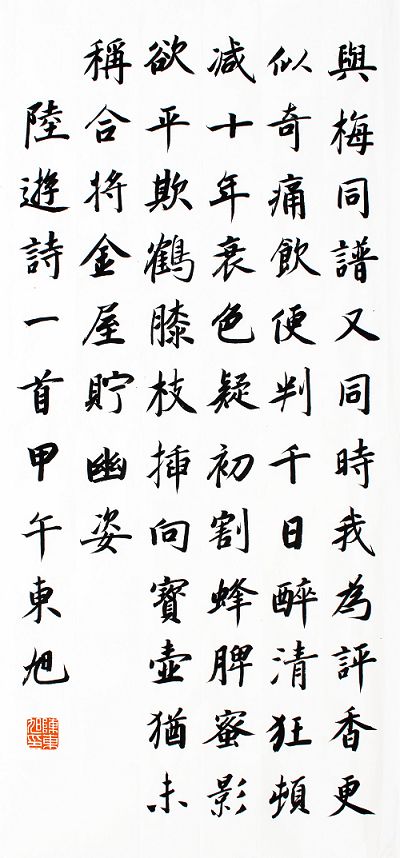 與梅同譜又同時我為評香更
似奇痛飲便判千日醉清狂頓
减十年衰色疑初割蜂脾蜜影
欲平欺鶴膝枝插向寶壺猶未
稱合将金屋貯幽姿
陸遊詩一首甲午東旭
陳東旭印